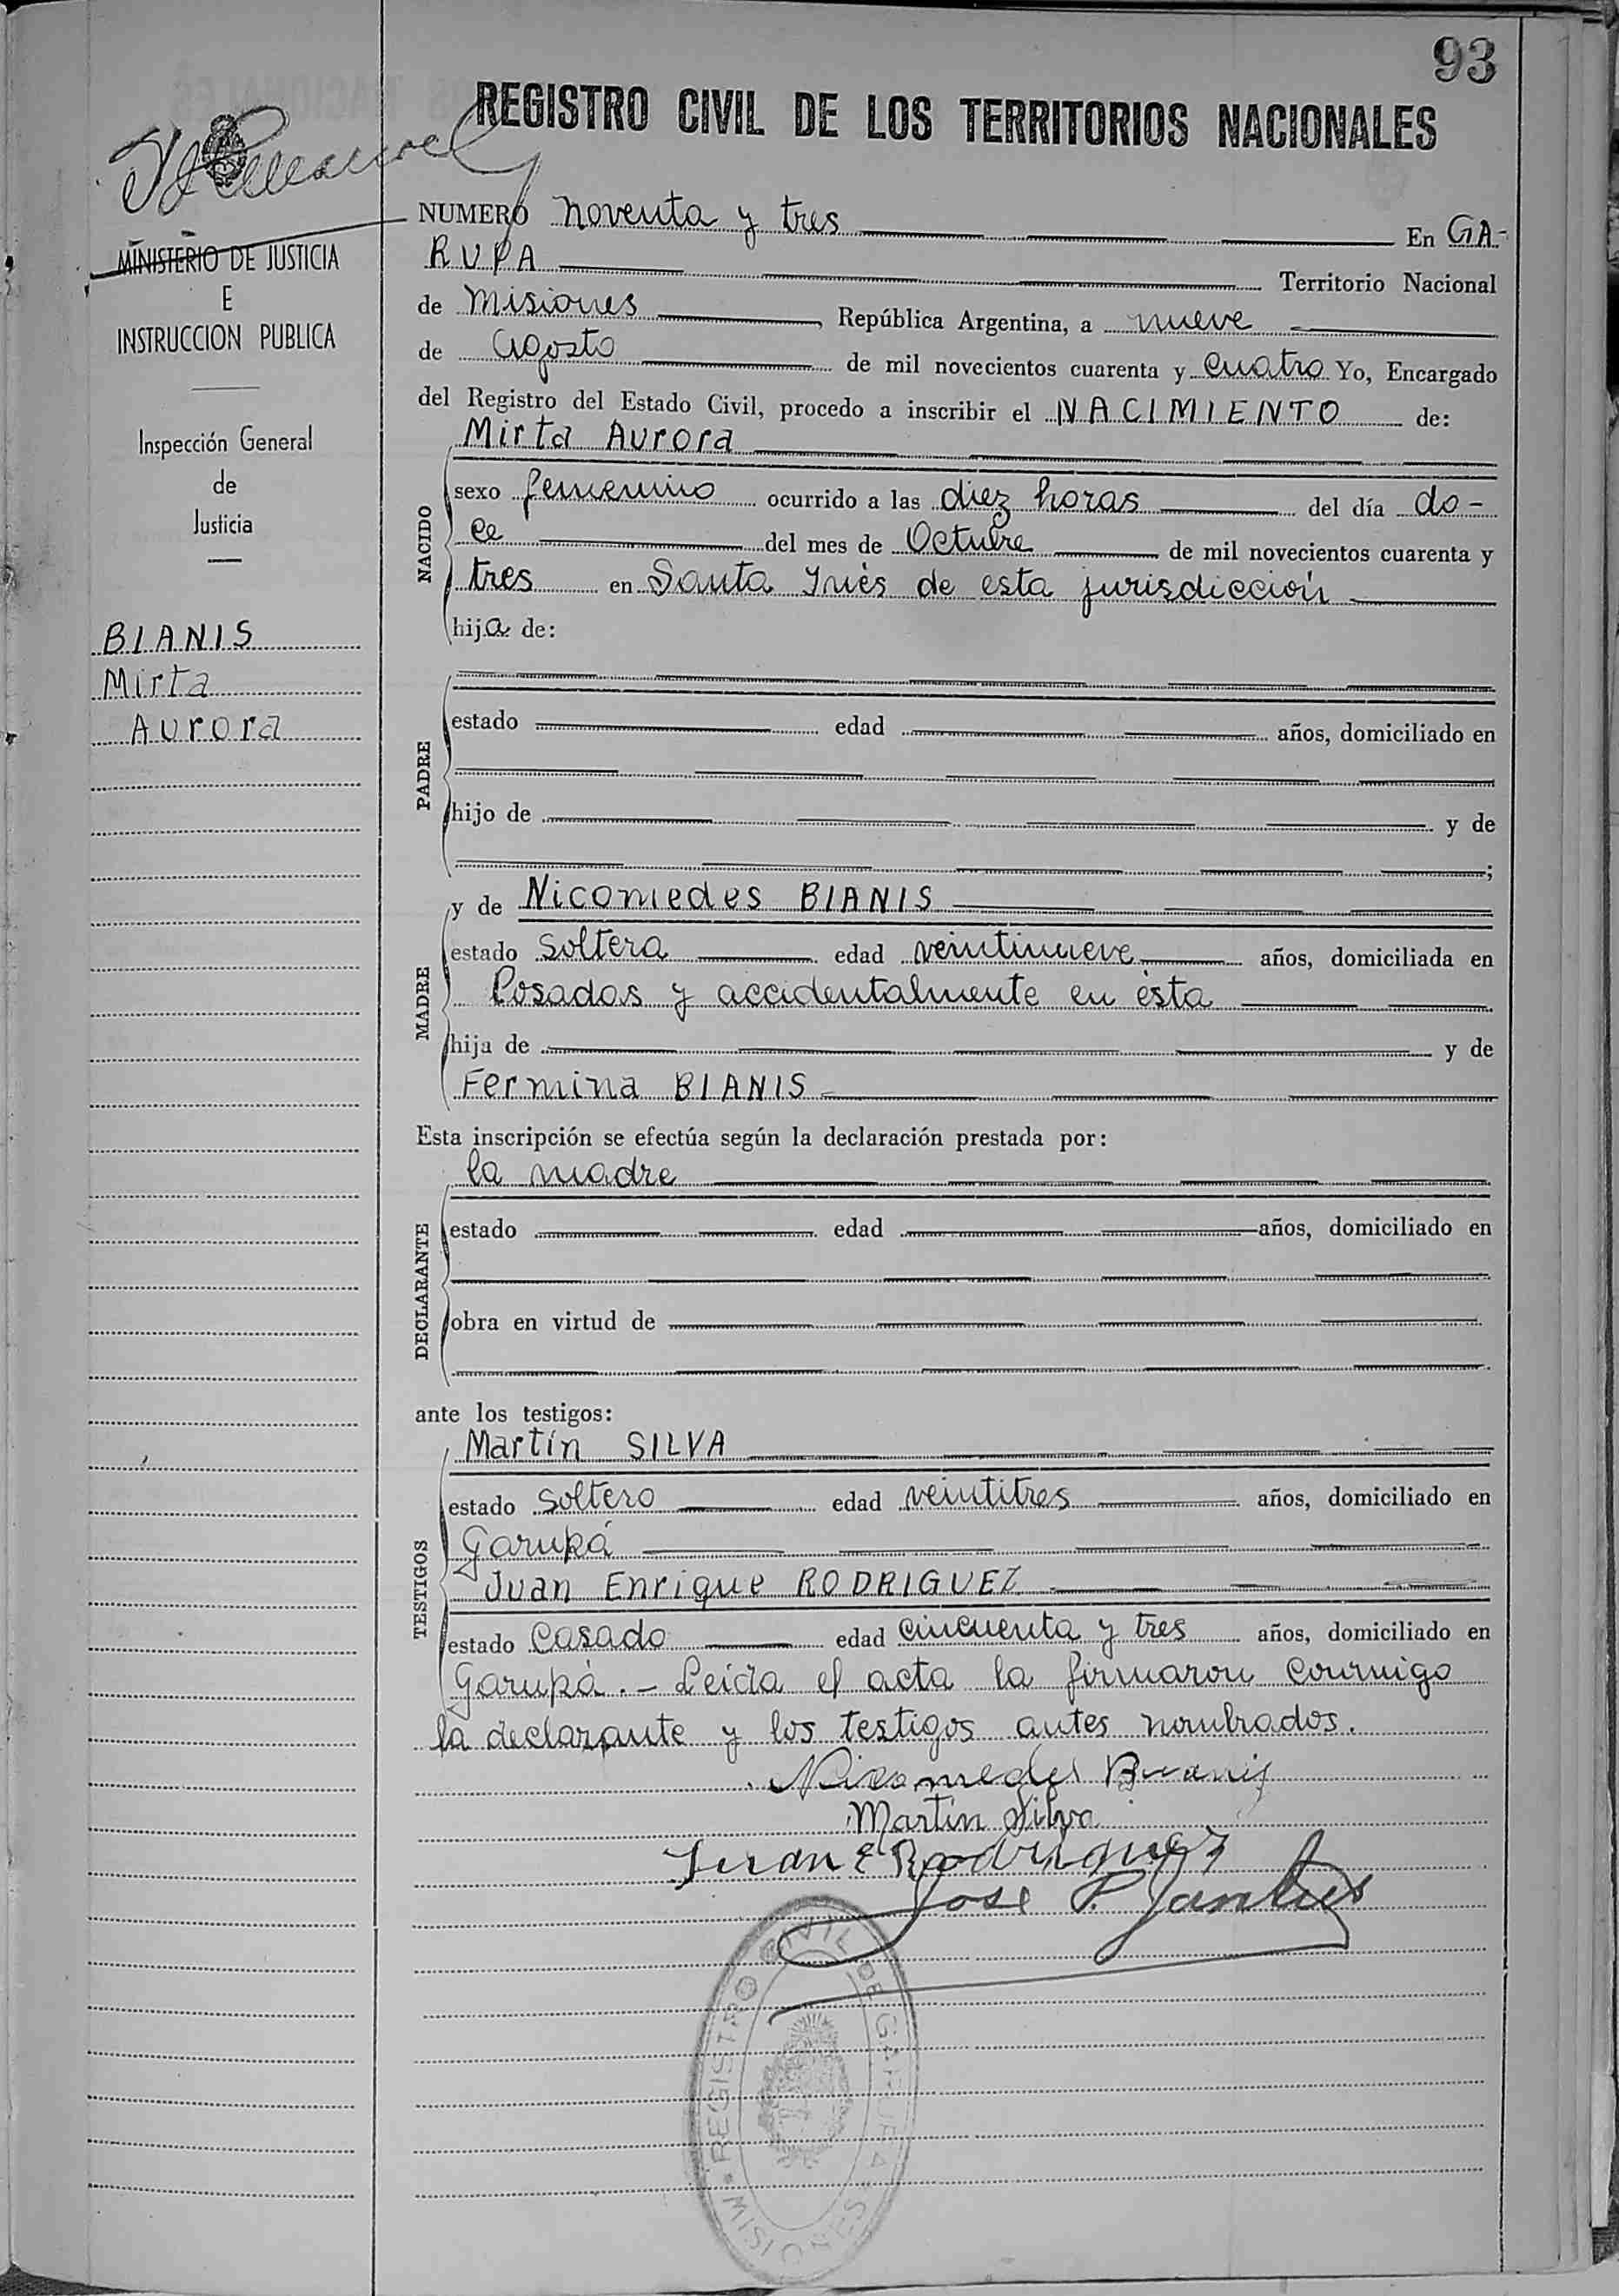 93
REGISTRO CIVIL DE LOS TERRITORIOS NACIONALES
MINISTERIO DE JUSTICIA
E
INSTRUCCION PUBLICA
Inspección General
de
Justicia
BIANIS
Mirta
Aurora
NUMERO noventa y tres En GA-
RUPA Territorio Nacional
de Misiones, República Argentina, a nueve
de Agosto de mil novecientos cuarenta y cuatro Yo, Encargado
del Registro del Estado Civil, procedo a inscribir el NACIMIENTO de:
Mirta Aurora
NACIDO
sexo femenino ocurrido a las diez horas del día do-
ce del mes de Octubre de mil novecientos cuarenta y
tres en Santa Inés de esta jurisdicción
hija de:
PADRE
estado edad años, domiciliado en
hijo de y de
;
MADRE
y de Nicomedes BIANIS
estado soltera edad veintinueve años, domiciliada en
Posadas y accidentalmente en ésta
hija de y de
Fermina BIANIS
Esta inscripción se efectúa según la declaración prestada por:
la madre
DECLARANTE
estado edad años, domiciliado en
obra en virtud de
ante los testigos:
TESTIGOS
Martín SILVA
estado soltero edad veintitres años, domiciliado en
Garupá
Juan Enrique RODRIGUEZ
estado casado edad cincuenta y tres años, domiciliado en
Garupá.- Leída el acta la firmaron conmigo
la declarante y los testigos antes nombrados.
Nicomedes Bianis
Martin Silva
Juan E Rodriguez
Jose P.
REGISTRO CIVIL DE GARUPA
MISIONES